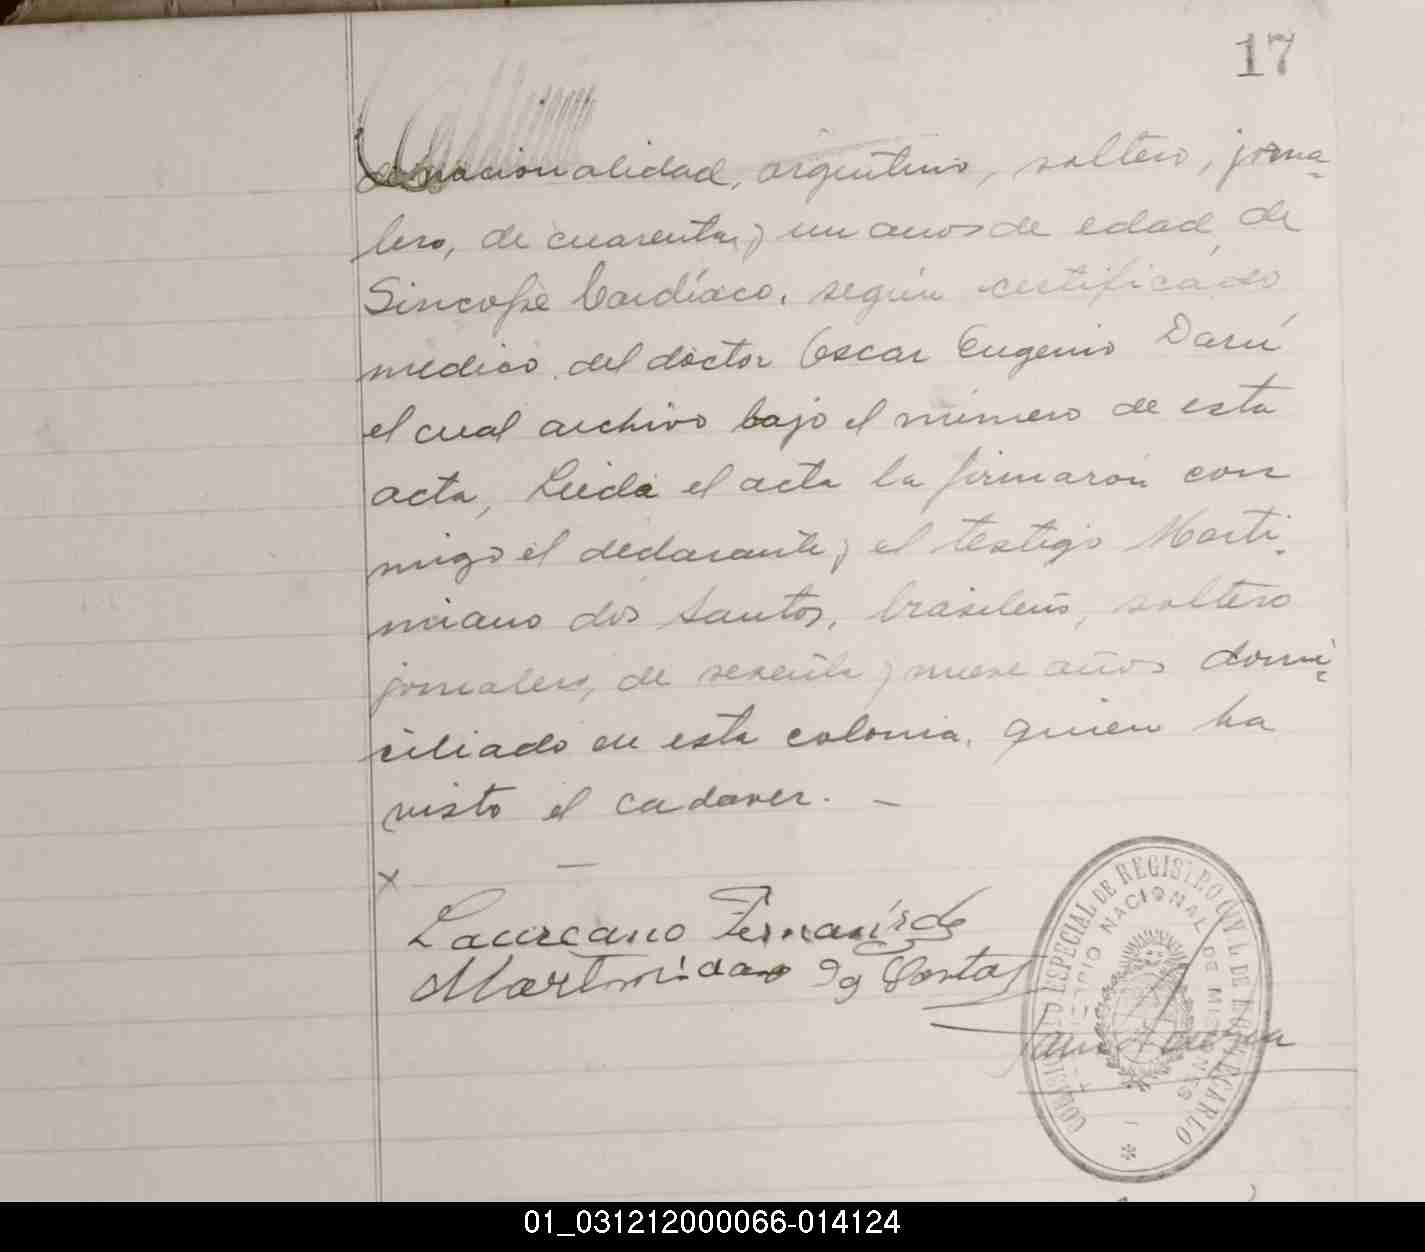 17
nacionalidad, argentino, soltero, jorna-
lero, de cuarenta y un anos de edad, de
Sincope Cardíaco, según certificado
medico del doctor Oscar Eugenio Darú
el cual archivo bajo el número de esta
acta, Leida el acta la firmaron con
migo el declarante y el testigo Marti-
niano dos Santos, brasileño, soltero
jornalero, de sesenta y nueve años domi-
ciliado en esta colonia, quien ha
visto el cadaver. —
x —
Laureano
COMISARIATO ESPECIAL DE REGISTRO CIVIL DE MONTECARLO
TERRITORIO NACIONAL DE MISIONES
01_031212000066-014124